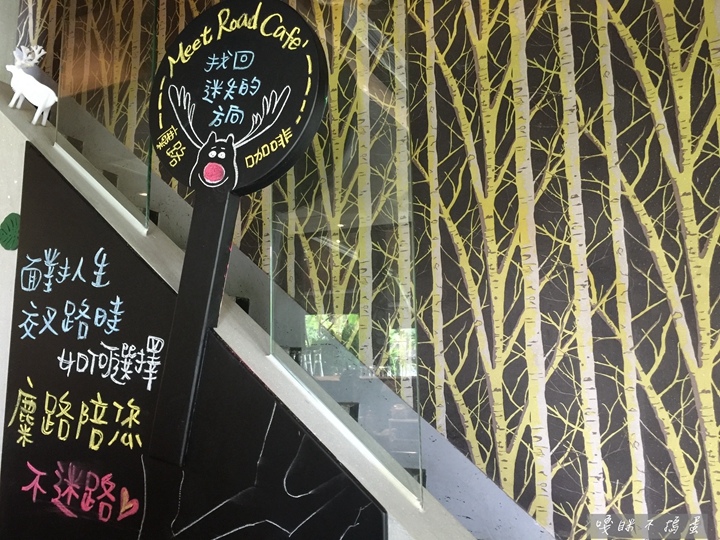 Meet Road Café
找回
迷失的
方向
麋路
咖啡
面對人生
交叉路時
如何選擇
麋路陪您
不迷路
嘎眯不搗蛋